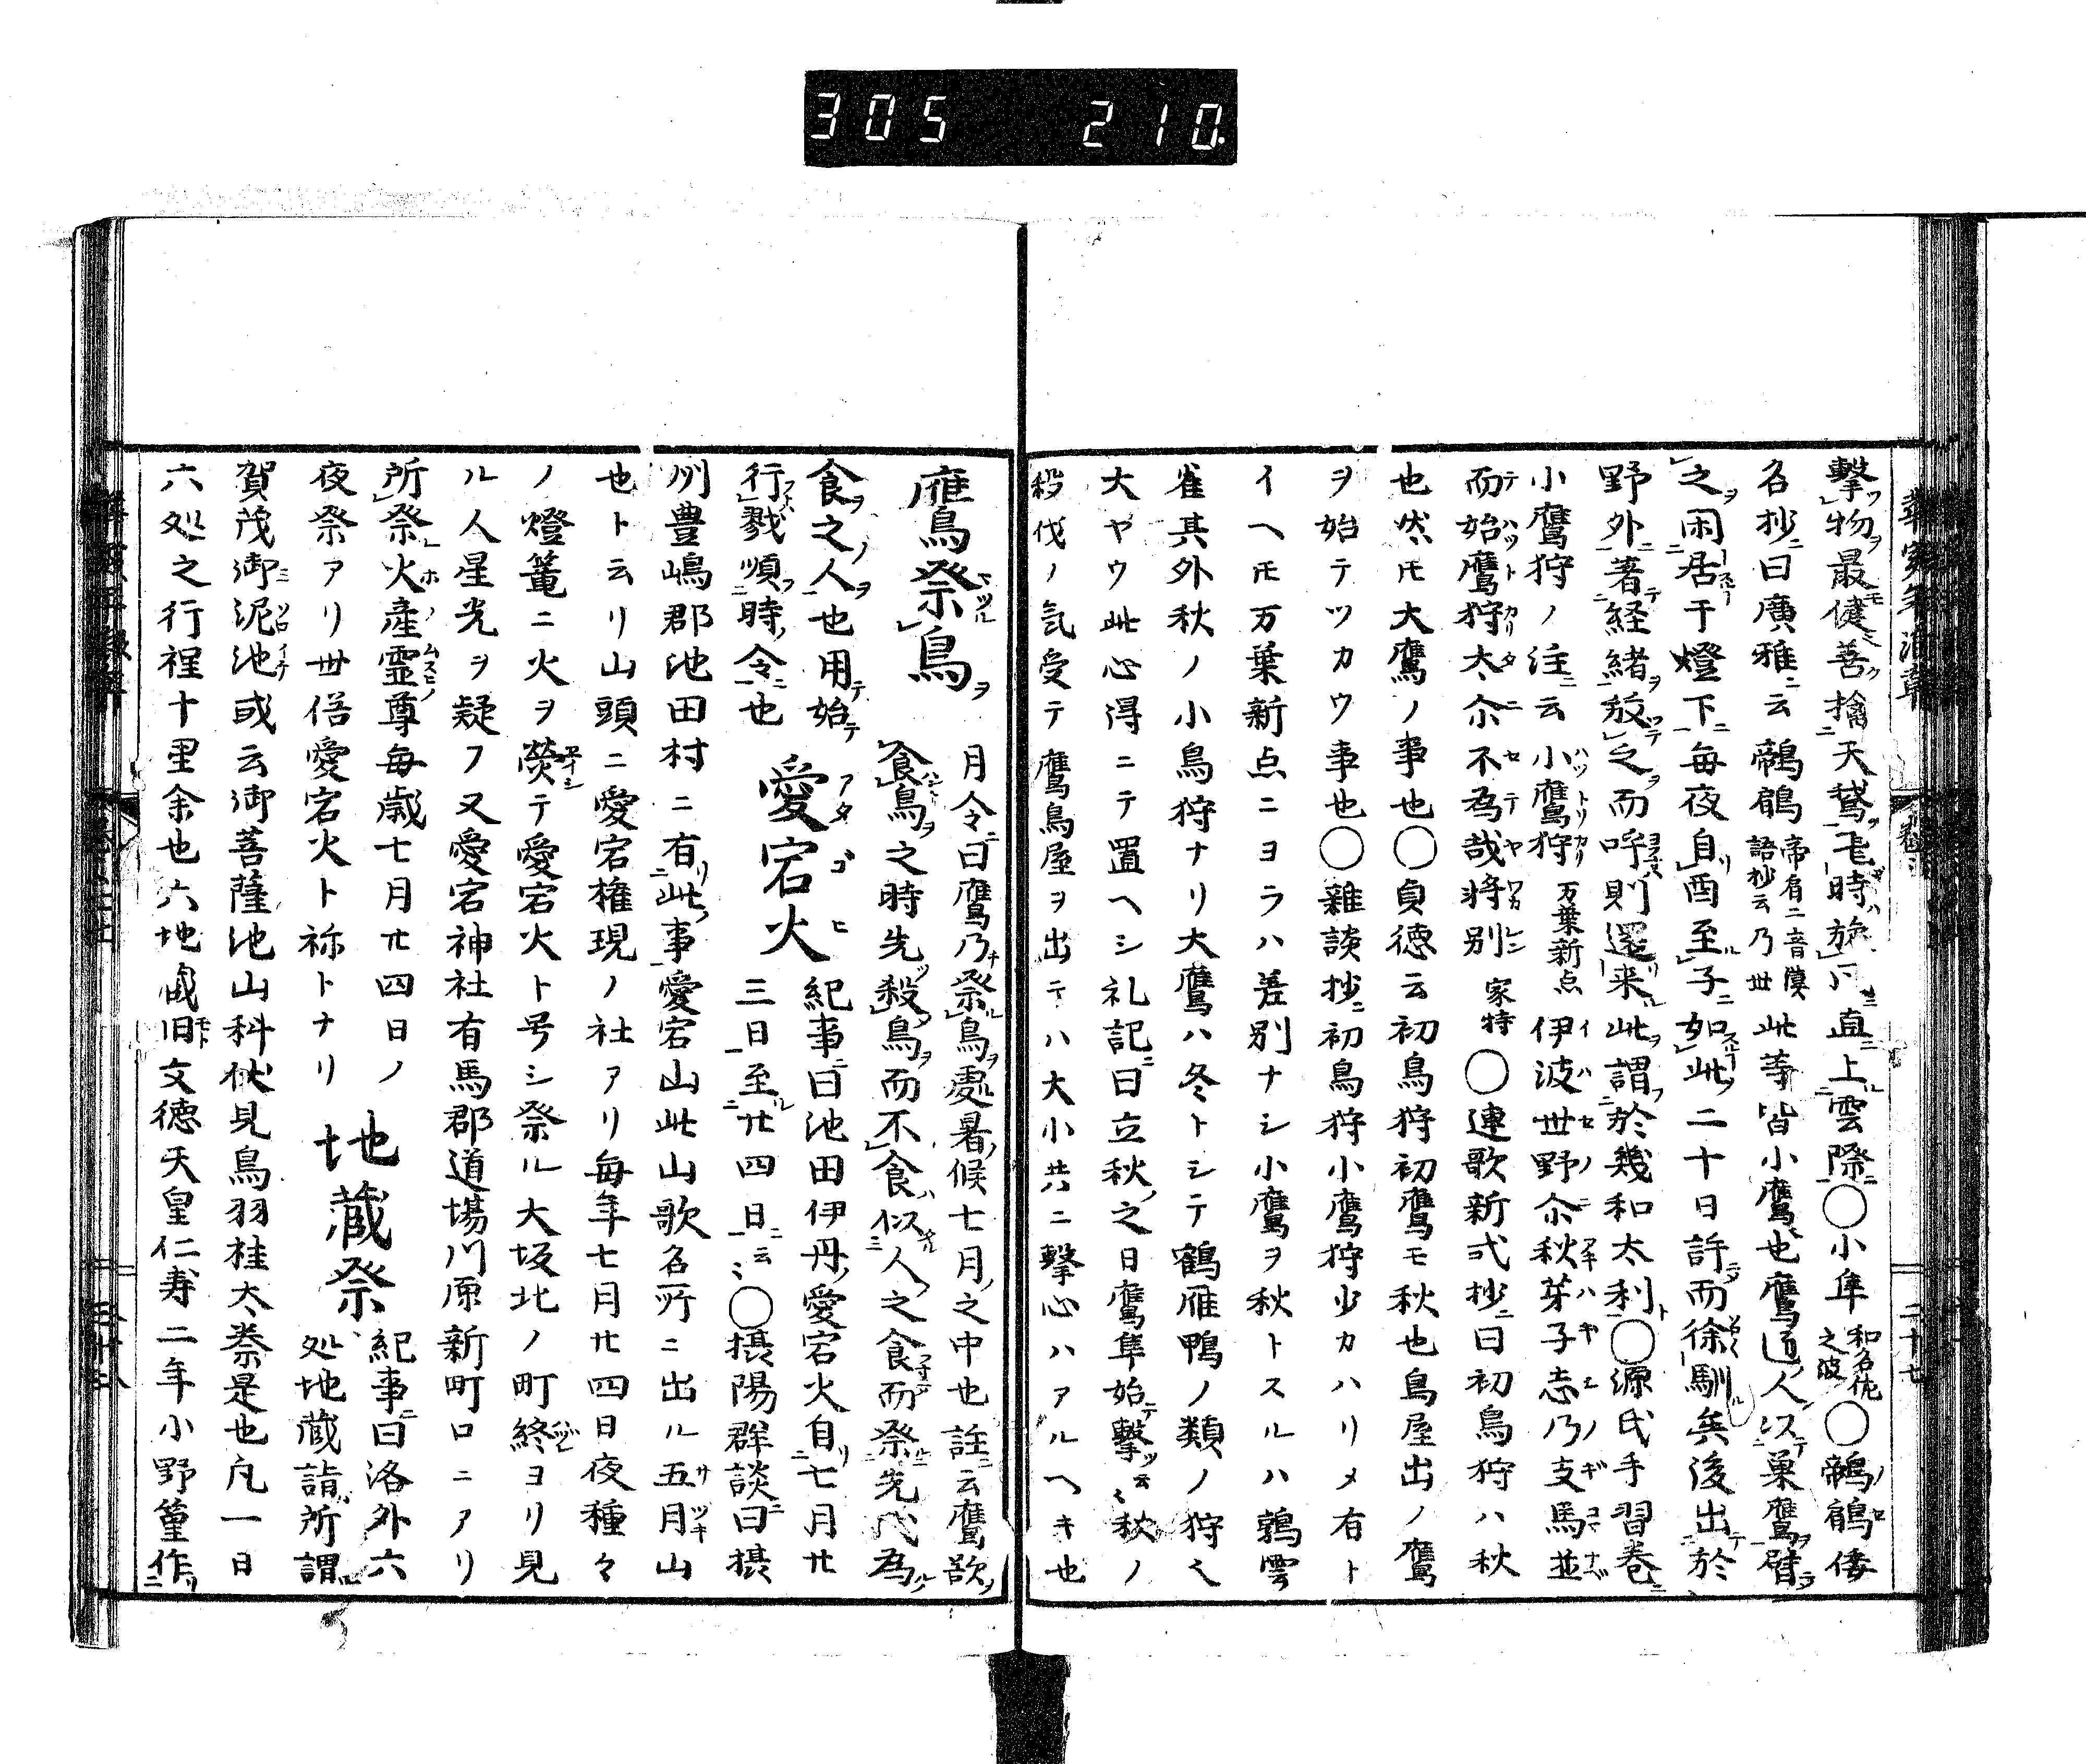 305 210.
擊物最健善擒天鵞
直上雲際○小隼 和名佐之波 ○鶙鶮倭
名抄曰廣雅云鶙鶮 帝肩二音漢語抄云乃世 此等皆小鷹也鷹匠人以巣鷹臂
之闲居于燈下每夜自酉至子如此二十日許而徐馴矣後出於
野外著経緒放之而呼則還来此謂於幾和太利○源氏手習巻
小鷹狩ノ注云小鷹狩 万葉新点 伊波世野尓秋芽子志乃支馬並
而始鷹狩太尓不為哉将別 家持 ○連歌新式抄曰初鳥狩ハ秋
也然𪜈大鷹ノ事也○貞徳云初鳥狩初鷹モ秋也鳥屋出ノ鷹
ヲ始テツカウ事也○雜談抄初鳥狩小鷹狩少カハリメ有ト
イヘ𪜈万葉新点ニヨラハ差別ナシ小鷹ヲ秋トスルハ鶉雲
雀其外秋ノ小鳥狩ナリ大鷹ハ冬トシテ鶴雁鴨ノ類ノ狩也
大ヤウ此心得ニテ置ヘシ礼記曰立秋之日鷹隼始擊云〻秋ノ
殺伐ノ気受テ鷹鳥屋ヲ出テハ大小共ニ擊心ハアルヘキ也
鷹祭鳥 月令曰鷹乃祭鳥處暑候七月之中也註云鷹欲
食鳥之時先殺鳥而不食似人之食而祭先代為
食之人也用始
行戮順時令也
愛宕火 アタゴヒ 紀事曰池田伊丹愛宕火自七月廿
三日至廿四日云〻○摂陽群談曰摂
州豊嶋郡池田村ニ有此事愛宕山此山歌名所ニ出ル五月山
也ト云リ山頭ニ愛宕権現ノ社アリ每年七月廿四日夜種々
ノ燈篭ニ火ヲ熒テ愛宕火ト号シ祭ル大坂北ノ町終ヨリ見
ル人星光ヲ疑フ又愛宕神社有馬郡道場川原新町口ニアリ
所祭火産霊尊每歳七月廿四日ノ
夜祭アリ世俗愛宕火ト称トナリ
地蔵祭 紀事曰洛外六
処地蔵詣所謂
賀茂御泥池或云御菩薩池山科伏見鳥羽桂太秦是也凡一日
六処之行程十里余也六地蔵旧文徳天皇仁寿二年小野篁作